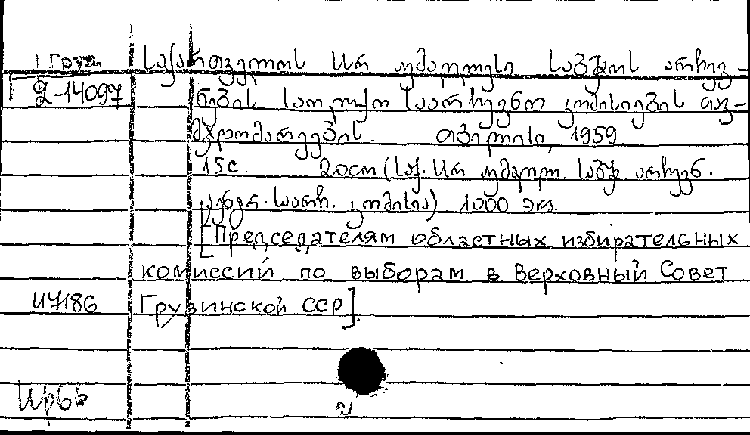 1 Груз. საქართველოს სსრ უმაღლესი საბჭოს არჩევ-
2-14097 ნების საოლქო საარჩევნო კომისიების თავ-
მჯდომარეების. თბილისი, 1959
15с 20см (საქ. სსრ უმაღლ. საბჭ. არჩევნ.
ცენტრ. საარჩ. კომისია) 1000 экз.
[Председателям областных избирательных
комиссий по выборам в Верховный Совет
Грузинской ССР].